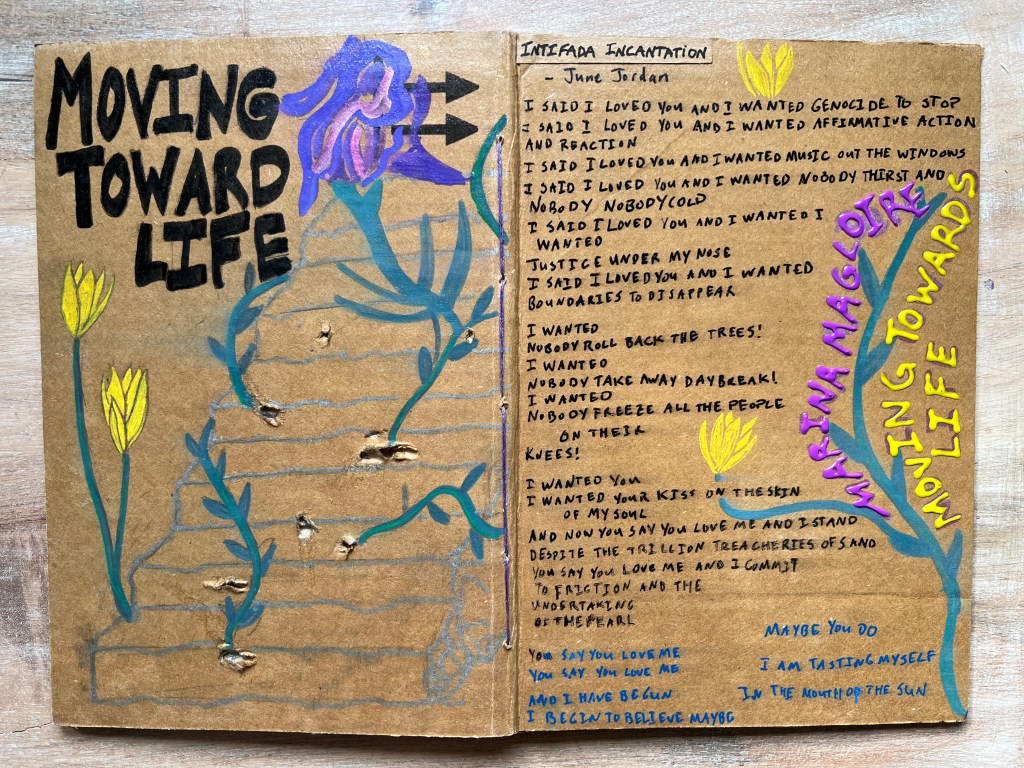 MOVING
TOWARD
LIFE
INTIFADA INCANTATION
- June Jordan
I SAID I LOVED YOU AND I WANTED GENOCIDE TO STOP
I SAID I LOVED YOU AND I WANTED AFFIRMATIVE ACTION
AND REACTION
I SAID I LOVED YOU AND I WANTED MUSIC OUT THE WINDOWS
I SAID I LOVED YOU AND I WANTED NOBODY THIRST AND
NOBODY NOBODY COLD
I SAID I LOVED YOU AND I WANTED I
WANTED
JUSTICE UNDER MY NOSE
I SAID I LOVED YOU AND I WANTED
BOUNDARIES TO DISAPPEAR
I WANTED
NOBODY ROLL BACK THE TREES!
I WANTED
NOBODY TAKE AWAY DAYBREAK!
I WANTED
NOBODY FREEZE ALL THE PEOPLE
ON THEIR
KNEES!
I WANTED YOU
I WANTED YOUR KISS ON THE SKIN
OF MY SOUL
AND NOW YOU SAY YOU LOVE ME AND I STAND
DESPITE THE TRILLION TREACHERIES OF SAND
YOU SAY YOU LOVE ME AND I COMMIT
TO FRICTION AND THE
UNDERTAKING
OF THE PEARL
YOU SAY YOU LOVE ME
YOU SAY YOU LOVE ME
AND I HAVE BEGUN
I BEGIN TO BELIEVE MAYBE
MAYBE YOU DO
I AM TASTING MYSELF
IN THE MOUTH OF THE SUN
MARINA MAGLOIRE
MOVING TOWARDS
LIFE